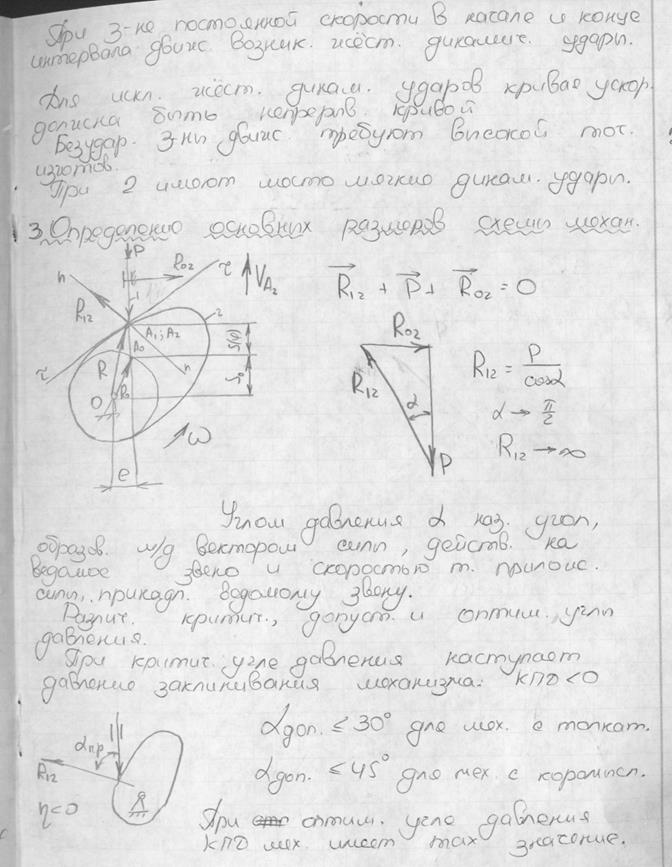 При 3-не постоянной скорости в начале и конце
интервала движ. возник. жёст. динамич. удары.
Для искл. жёст. динам. ударов кривая ускор.
должна быть непрерв. кривой
Безудар. з-ны движ. требуют высокой точ.
изготов.
При 2 имеют место мягкие динам. удары.
3. Определение основных размеров схемы механ.
P
R02
τ
VA2
n
R12
2
A1; A2
A0
S(φ)
S0
R
R0
n
τ
O
ω
e
R12 + P + R02 = 0
R02
R12
α
P
R12 = P / cosα
α → π/2
R12 → ∞
Углом давления α наз. угол,
образов. м/д вектором силы, действ. на
ведомое звено и скоростью т. прилож.
силы, принадл. ведомому звену.
Различ. критич., допуст. и оптим. углы
давления.
При критич. угле давления наступает
давление заклинивания механизма: КПД < 0
αпр
R12
η<0
αдоп. ≤ 30° для мех. с толкат.
αдоп. ≤ 45° для мех. с коромысл.
При оптим. угле давления
КПД мех. имеет max значение.